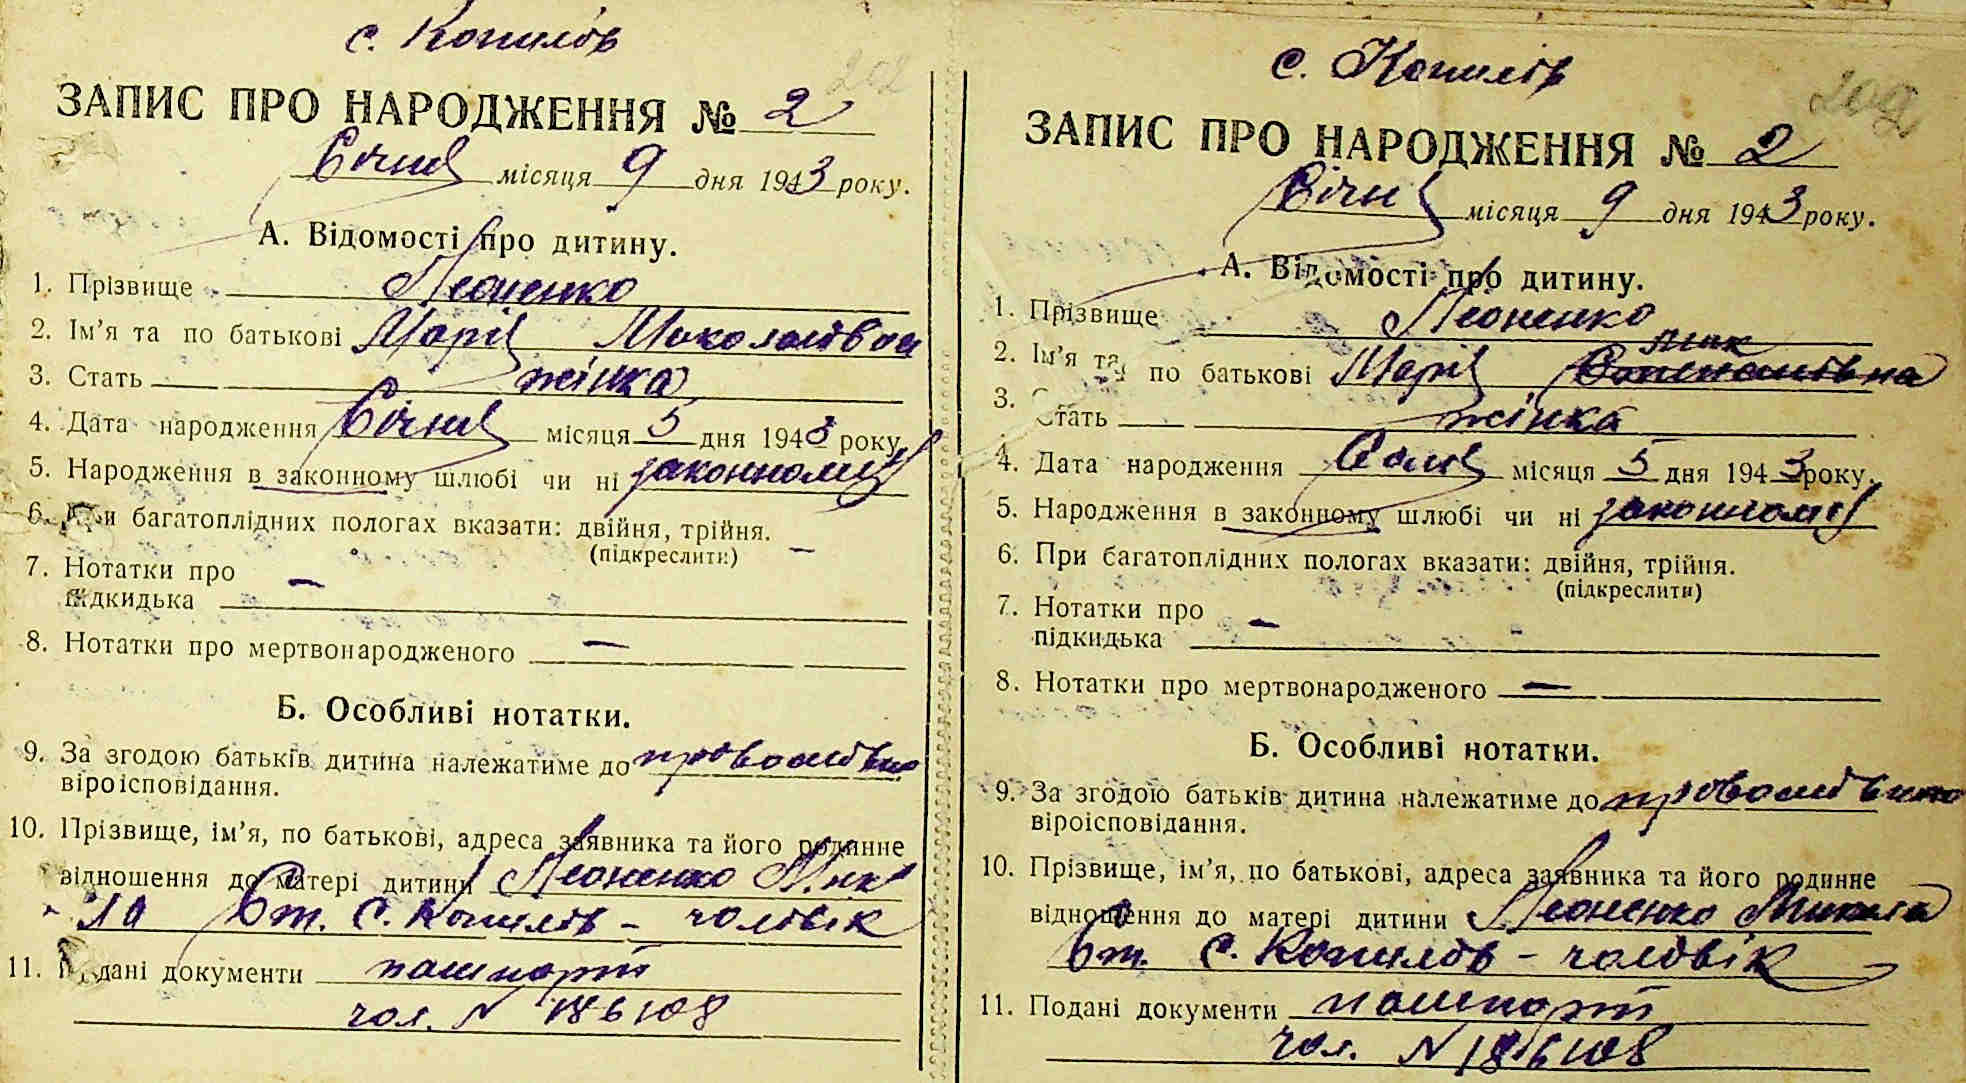 с. Копилів
ЗАПИС ПРО НАРОДЖЕННЯ № 2
Січня місяця 9 дня 1943 року.
А. Відомості про дитину.
1. Прізвище Леоненко
2. Ім'я та по батькові Марія Миколаївна
3. Стать жінка
4. Дата народження Січня місяця 5 дня 1943 року
5. Народження в законному шлюбі чи ні законному
6. При багатоплідних пологах вказати: двійня, трійня. –
(підкреслити)
7. Нотатки про –
підкидька
8. Нотатки про мертвонародженого –
Б. Особливі нотатки.
9. За згодою батьків дитина належатиме до
віроісповідання.
10. Прізвище, ім'я, по батькові, адреса заявника та його родинне
відношення до матері дитини Леоненко Мик
ла Ст. с. Копилів – чоловік
11. Подані документи пашпорт
чол. N 186108
с. Копилів
202
ЗАПИС ПРО НАРОДЖЕННЯ № 2
Січня місяця 9 дня 1943 року.
А. Відомості про дитину.
1. Прізвище Леоненко
Мик
2. Ім'я та по батькові Марія Степанівна
3. Стать жінка
4. Дата народження Січня місяця 5 дня 1943 року.
5. Народження в законному шлюбі чи ні законному
6. При багатоплідних пологах вказати: двійня, трійня.
(підкреслити)
7. Нотатки про –
підкидька
8. Нотатки про мертвонародженого –
Б. Особливі нотатки.
9. За згодою батьків дитина належатиме до
віроісповідання.
10. Прізвище, ім'я, по батькові, адреса заявника та його родинне
відношення до матері дитини Леоненко Микола
Ст. с. Копилів – чоловік
11. Подані документи пашпорт
чол. N 186108